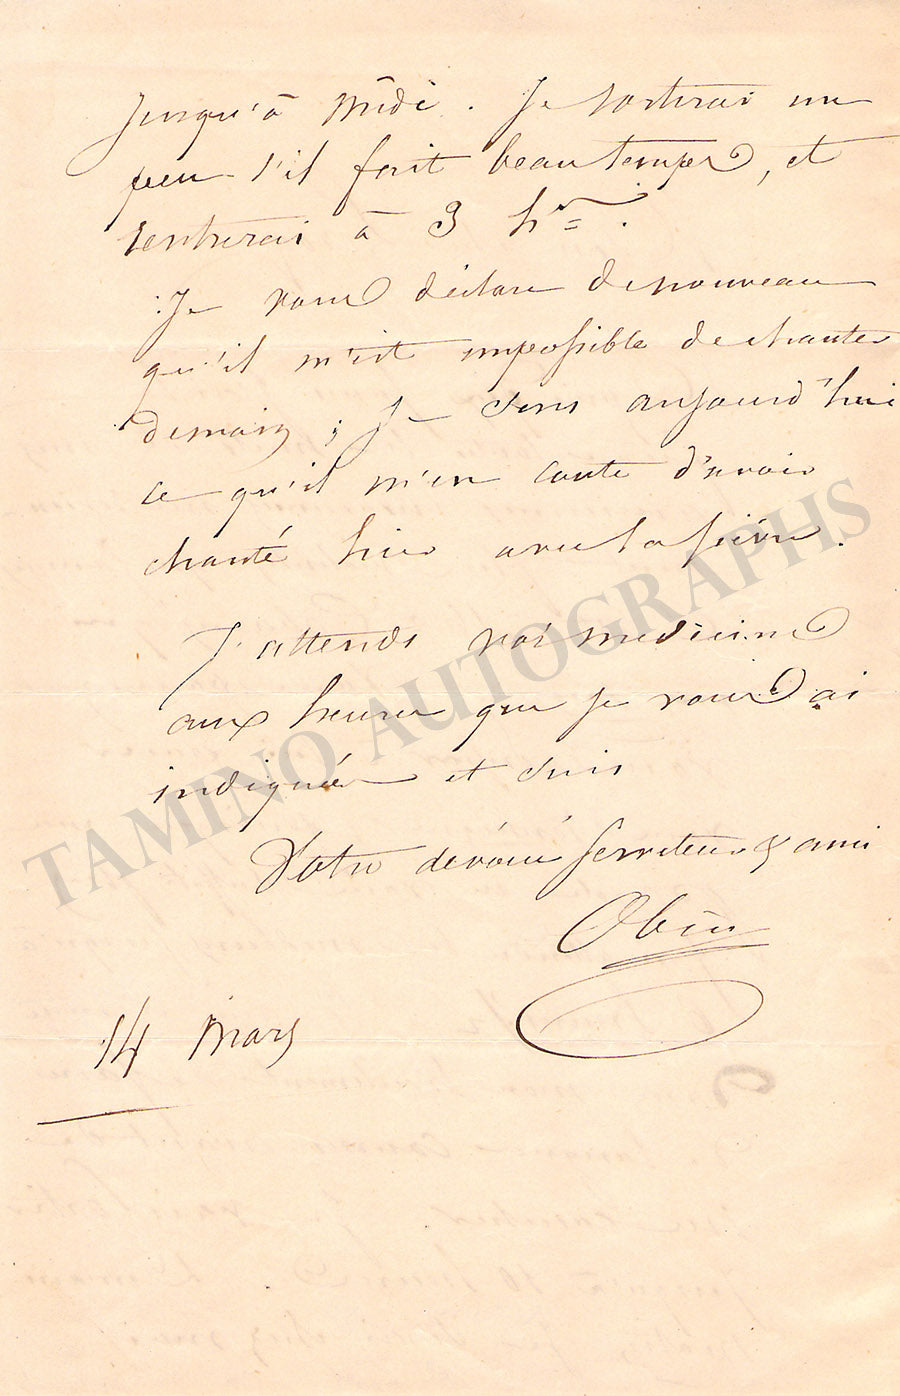 jusqu'à midi. Je sortirai un
peu s'il fait beau temps, et
rentrerai à 3 hres.
Je vous déclare de nouveau
qu'il m'est impossible de chanter
demain ; Je sens aujourd'hui
ce qu'il m'en coute d'avoir
chanté hier avec la fièvre.
J'attends vos medecins
aux heures que je vous ai
indiquées et suis
Votre dévoué serviteur & ami
Obin
14 Mars
TAMINO AUTOGRAPHS